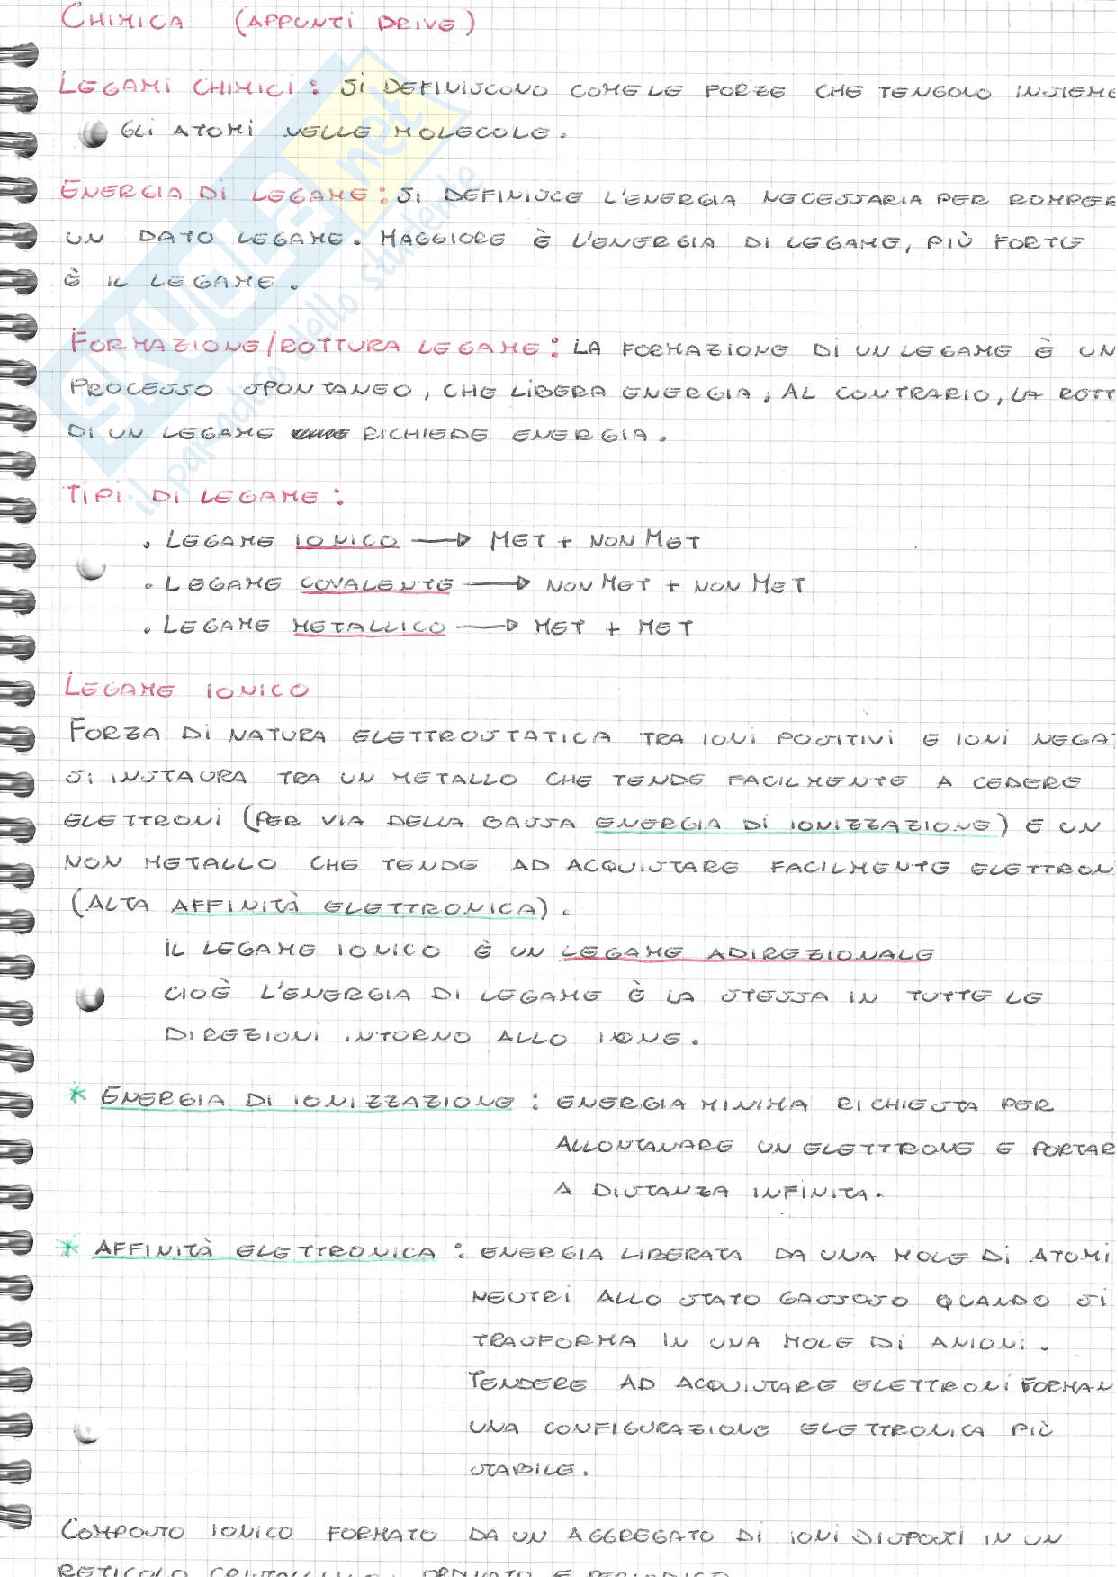 CHIMICA (APPUNTI DRIVE)
LEGAMI CHIMICI: SI DEFINISCONO COME LE FORZE CHE TENGOLO INSIEME
GLI ATOMI NELLE MOLECOLE.
ENERGIA DI LEGAME: SI DEFINISCE L'ENERGIA NECESSARIA PER ROMPER
UN DATO LEGAME. MAGGIORE È L'ENERGIA DI LEGAME, PIÙ FORTE
È IL LEGAME.
FORMAZIONE/ROTTURA LEGAME: LA FORMAZIONE DI UN LEGAME È UN
PROCESSO SPONTANEO, CHE LIBERA ENERGIA, AL CONTRARIO, LA ROTT
DI UN LEGAME RICHIEDE ENERGIA.
TIPI DI LEGAME:
. LEGAME IONICO → MET + NON MET
. LEGAME COVALENTE → NON MET + NON MET
. LEGAME METALLICO → MET + MET
LEGAME IONICO
FORZA DI NATURA ELETTROSTATICA TRA IONI POSITIVI E IONI NEGAT
SI INSTAURA TRA UN METALLO CHE TENDE FACILMENTE A CEDERE
ELETTRONI (PER VIA DELLA BASSA ENERGIA DI IONIZZAZIONE) E UN
NON METALLO CHE TENDE AD ACQUISTARE FACILMENTE ELETTRON
(ALTA AFFINITÀ ELETTRONICA).
IL LEGAME IONICO È UN LEGAME ADIREZIONALE
CIOÈ L'ENERGIA DI LEGAME È LA STESSA IN TUTTE LE
DIREZIONI INTORNO ALLO IONE.
* ENERGIA DI IONIZZAZIONE: ENERGIA MINIMA RICHIESTA PER
ALLONTANARE UN ELETTRONE E PORTAR
A DISTANZA INFINITA.
* AFFINITÀ ELETTRONICA: ENERGIA LIBERATA DA UNA MOLE DI ATOMI
NEUTRI ALLO STATO GASSOSO QUANDO SI
TRASFORMA IN UNA MOLE DI ANIONI.
TENDERE AD ACQUISTARE ELETTRONI FORMAN
UNA CONFIGURAZIONE ELETTRONICA PIÙ
STABILE.
COMPOSTO IONICO FORMATO DA UN AGGREGATO DI IONI DISPOSTI IN UN
RETICOLO CRISTALLINO, ORDINATO E PERIODICO
SKUOLA.net
il paradiso dello studente